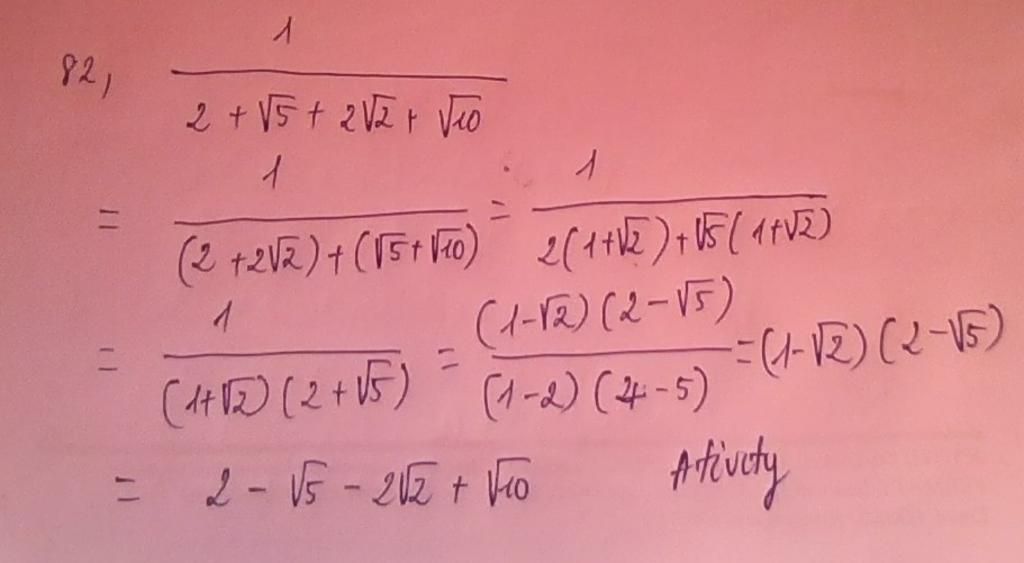 82, 1/(2 + √5 + 2√2 + √10)
= 1/((2 + 2√2) + (√5 + √10)) = 1/(2(1+√2) + √5(1+√2))
= 1/((1+√2)(2+√5)) = (1-√2)(2-√5)/((1-2)(4-5)) = (1-√2)(2-√5)
= 2 - √5 - 2√2 + √10